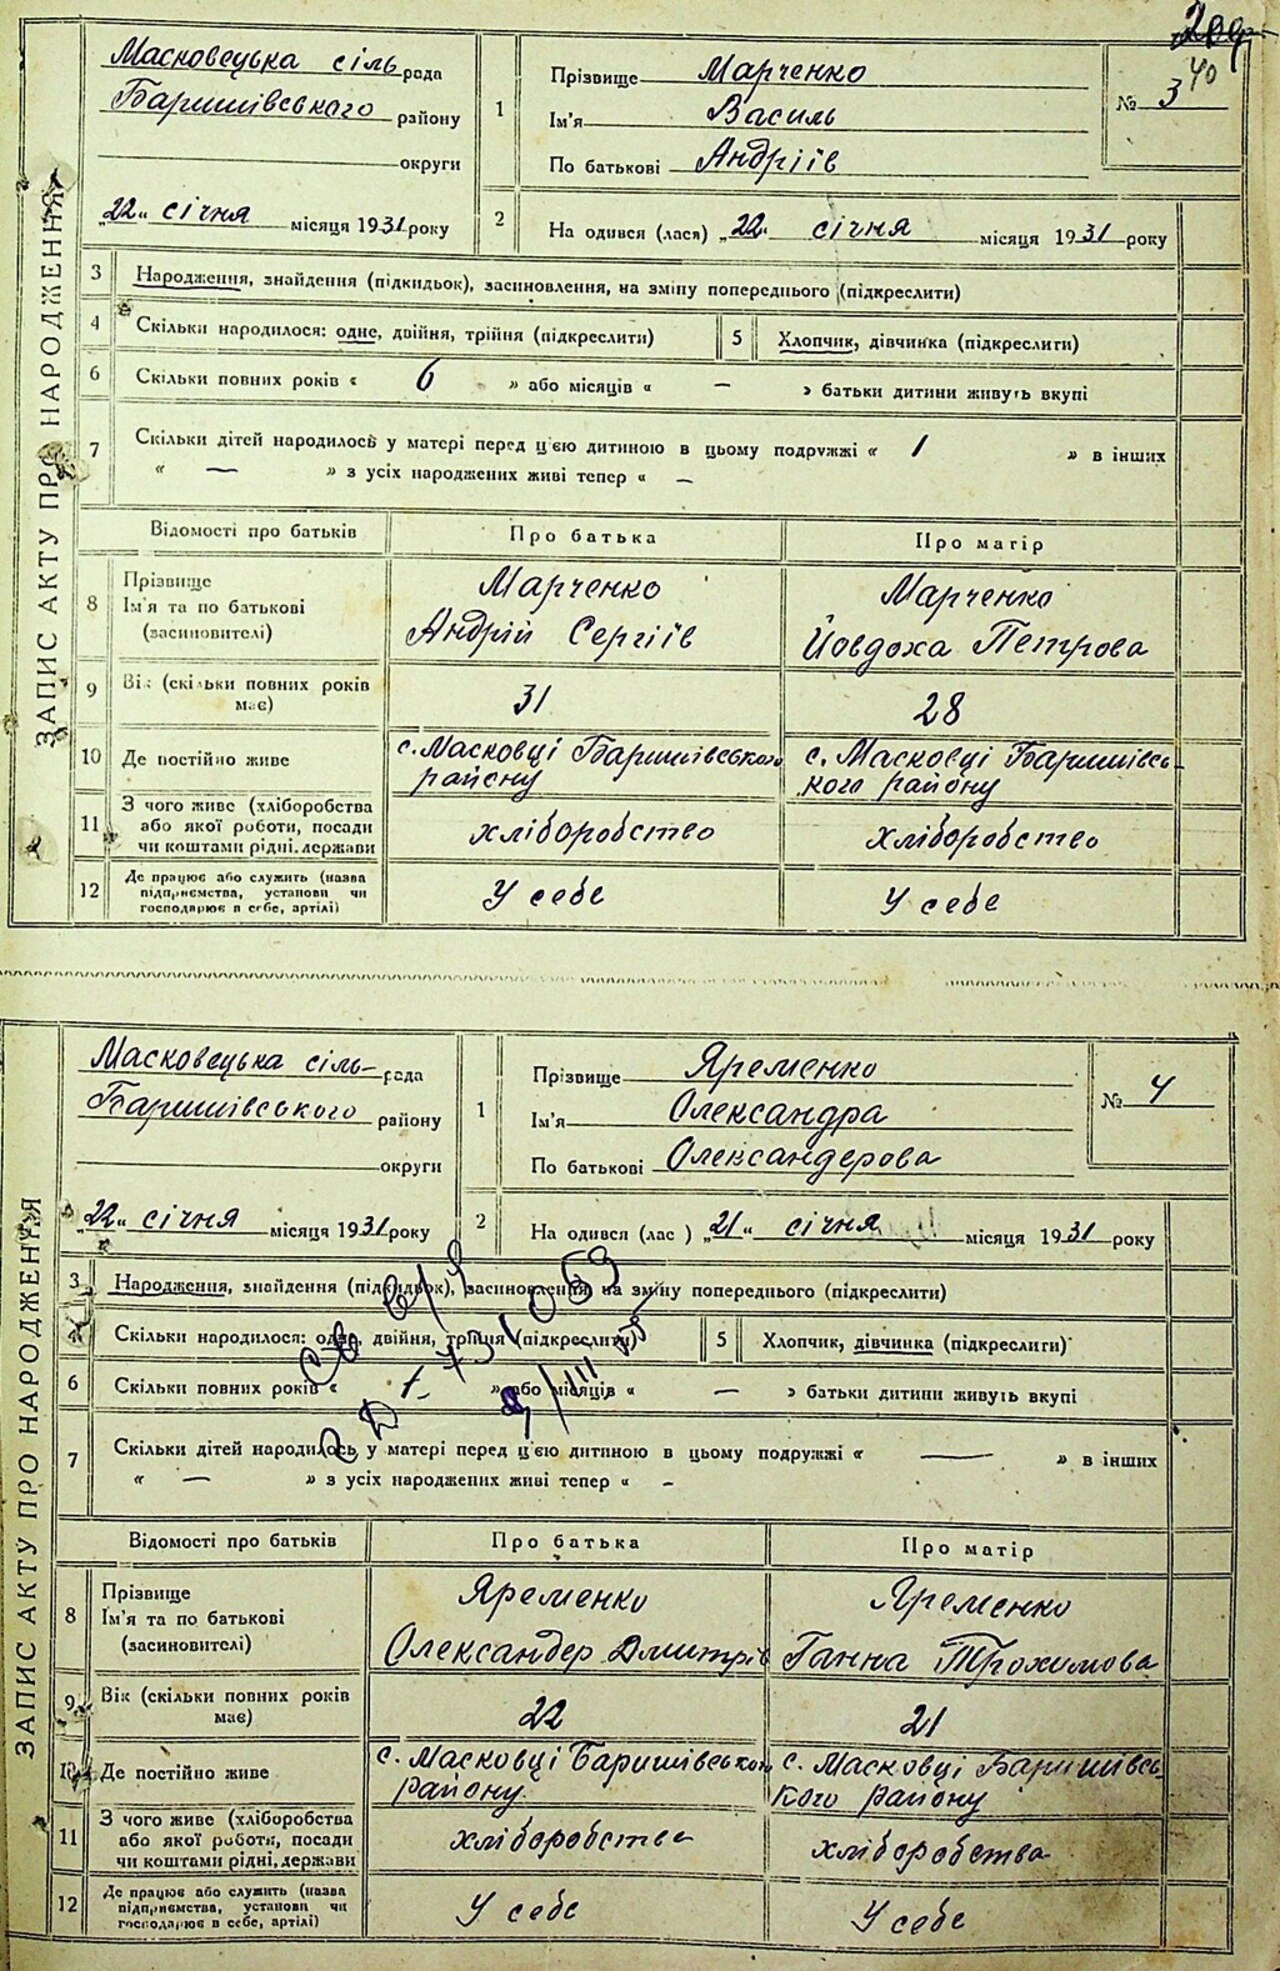 40
ЗАПИС АКТУ ПРО НАРОДЖЕННЯ
Масковецька сіль рада
Баришівського району
округи
„22“ січня місяця 1931 року
1
Прізвище Марченко
Ім'я Василь
По батькові Андріїв
№ 3
2
На одився (лася) „22“ січня місяця 1931 року
3 Народження, знайдення (підкидьок), засиновлення, на зміну попереднього (підкреслити)
4 Скільки народилося: одне, двійня, трійня (підкреслити)
5 Хлопчик, дівчинка (підкреслити)
6 Скільки повних років « 6 » або місяців « — » батьки дитини живуть вкупі
7 Скільки дітей народилось у матері перед цією дитиною в цьому подружжі « 1 » в інших
« — » з усіх народжених живі тепер « —
Відомості про батьків Про батька Про матір
8 Прізвище
Ім'я та по батькові
(засиновителі)
Марченко
Андрій Сергіїв
Марченко
Йовдоха Петрова
9 Вік (скільки повних років
має)
31
28
10 Де постійно живе
с. Масковці Баришівського
району
с. Масковці Баришівсь-
кого району
11 З чого живе (хліборобства
або якої роботи, посади
чи коштами рідні, держави
хліборобство
хліборобство
12 Де працює або служить (назва
підприємства, установи чи
господарює в себе, артілі)
У себе
У себе
ЗАПИС АКТУ ПРО НАРОДЖЕННЯ
Масковецька сіль- рада
Баришівського району
округи
„22“ січня місяця 1931 року
1
Прізвище Яременко
Ім'я Олександра
По батькові Олександерова
№ 4
2
На одився (лас ) „21“ січня місяця 1931 року
3 Народження, знайдення (підкидьок), засиновлення, на зміну попереднього (підкреслити)
4 Скільки народилося: одне, двійня, трійня (підкреслити)
5 Хлопчик, дівчинка (підкреслити)
6 Скільки повних років « 1 » або місяців « — » батьки дитини живуть вкупі
7 Скільки дітей народилось у матері перед цією дитиною в цьому подружжі « — » в інших
« — » з усіх народжених живі тепер « —
Відомості про батьків Про батька Про матір
8 Прізвище
Ім'я та по батькові
(засиновителі)
Яременко
Олександер Дмитрів
Яременко
Ганна Трохимова
9 Вік (скільки повних років
має)
22
21
10 Де постійно живе
с. Масковці Баришівського
району
с. Масковці Баришівсь-
кого району
11 З чого живе (хліборобства
або якої роботи, посади
чи коштами рідні, держави
хліборобства
хліборобства
12 Де працює або служить (назва
підприємства, установи чи
господарює в себе, артілі)
У себе
У себе